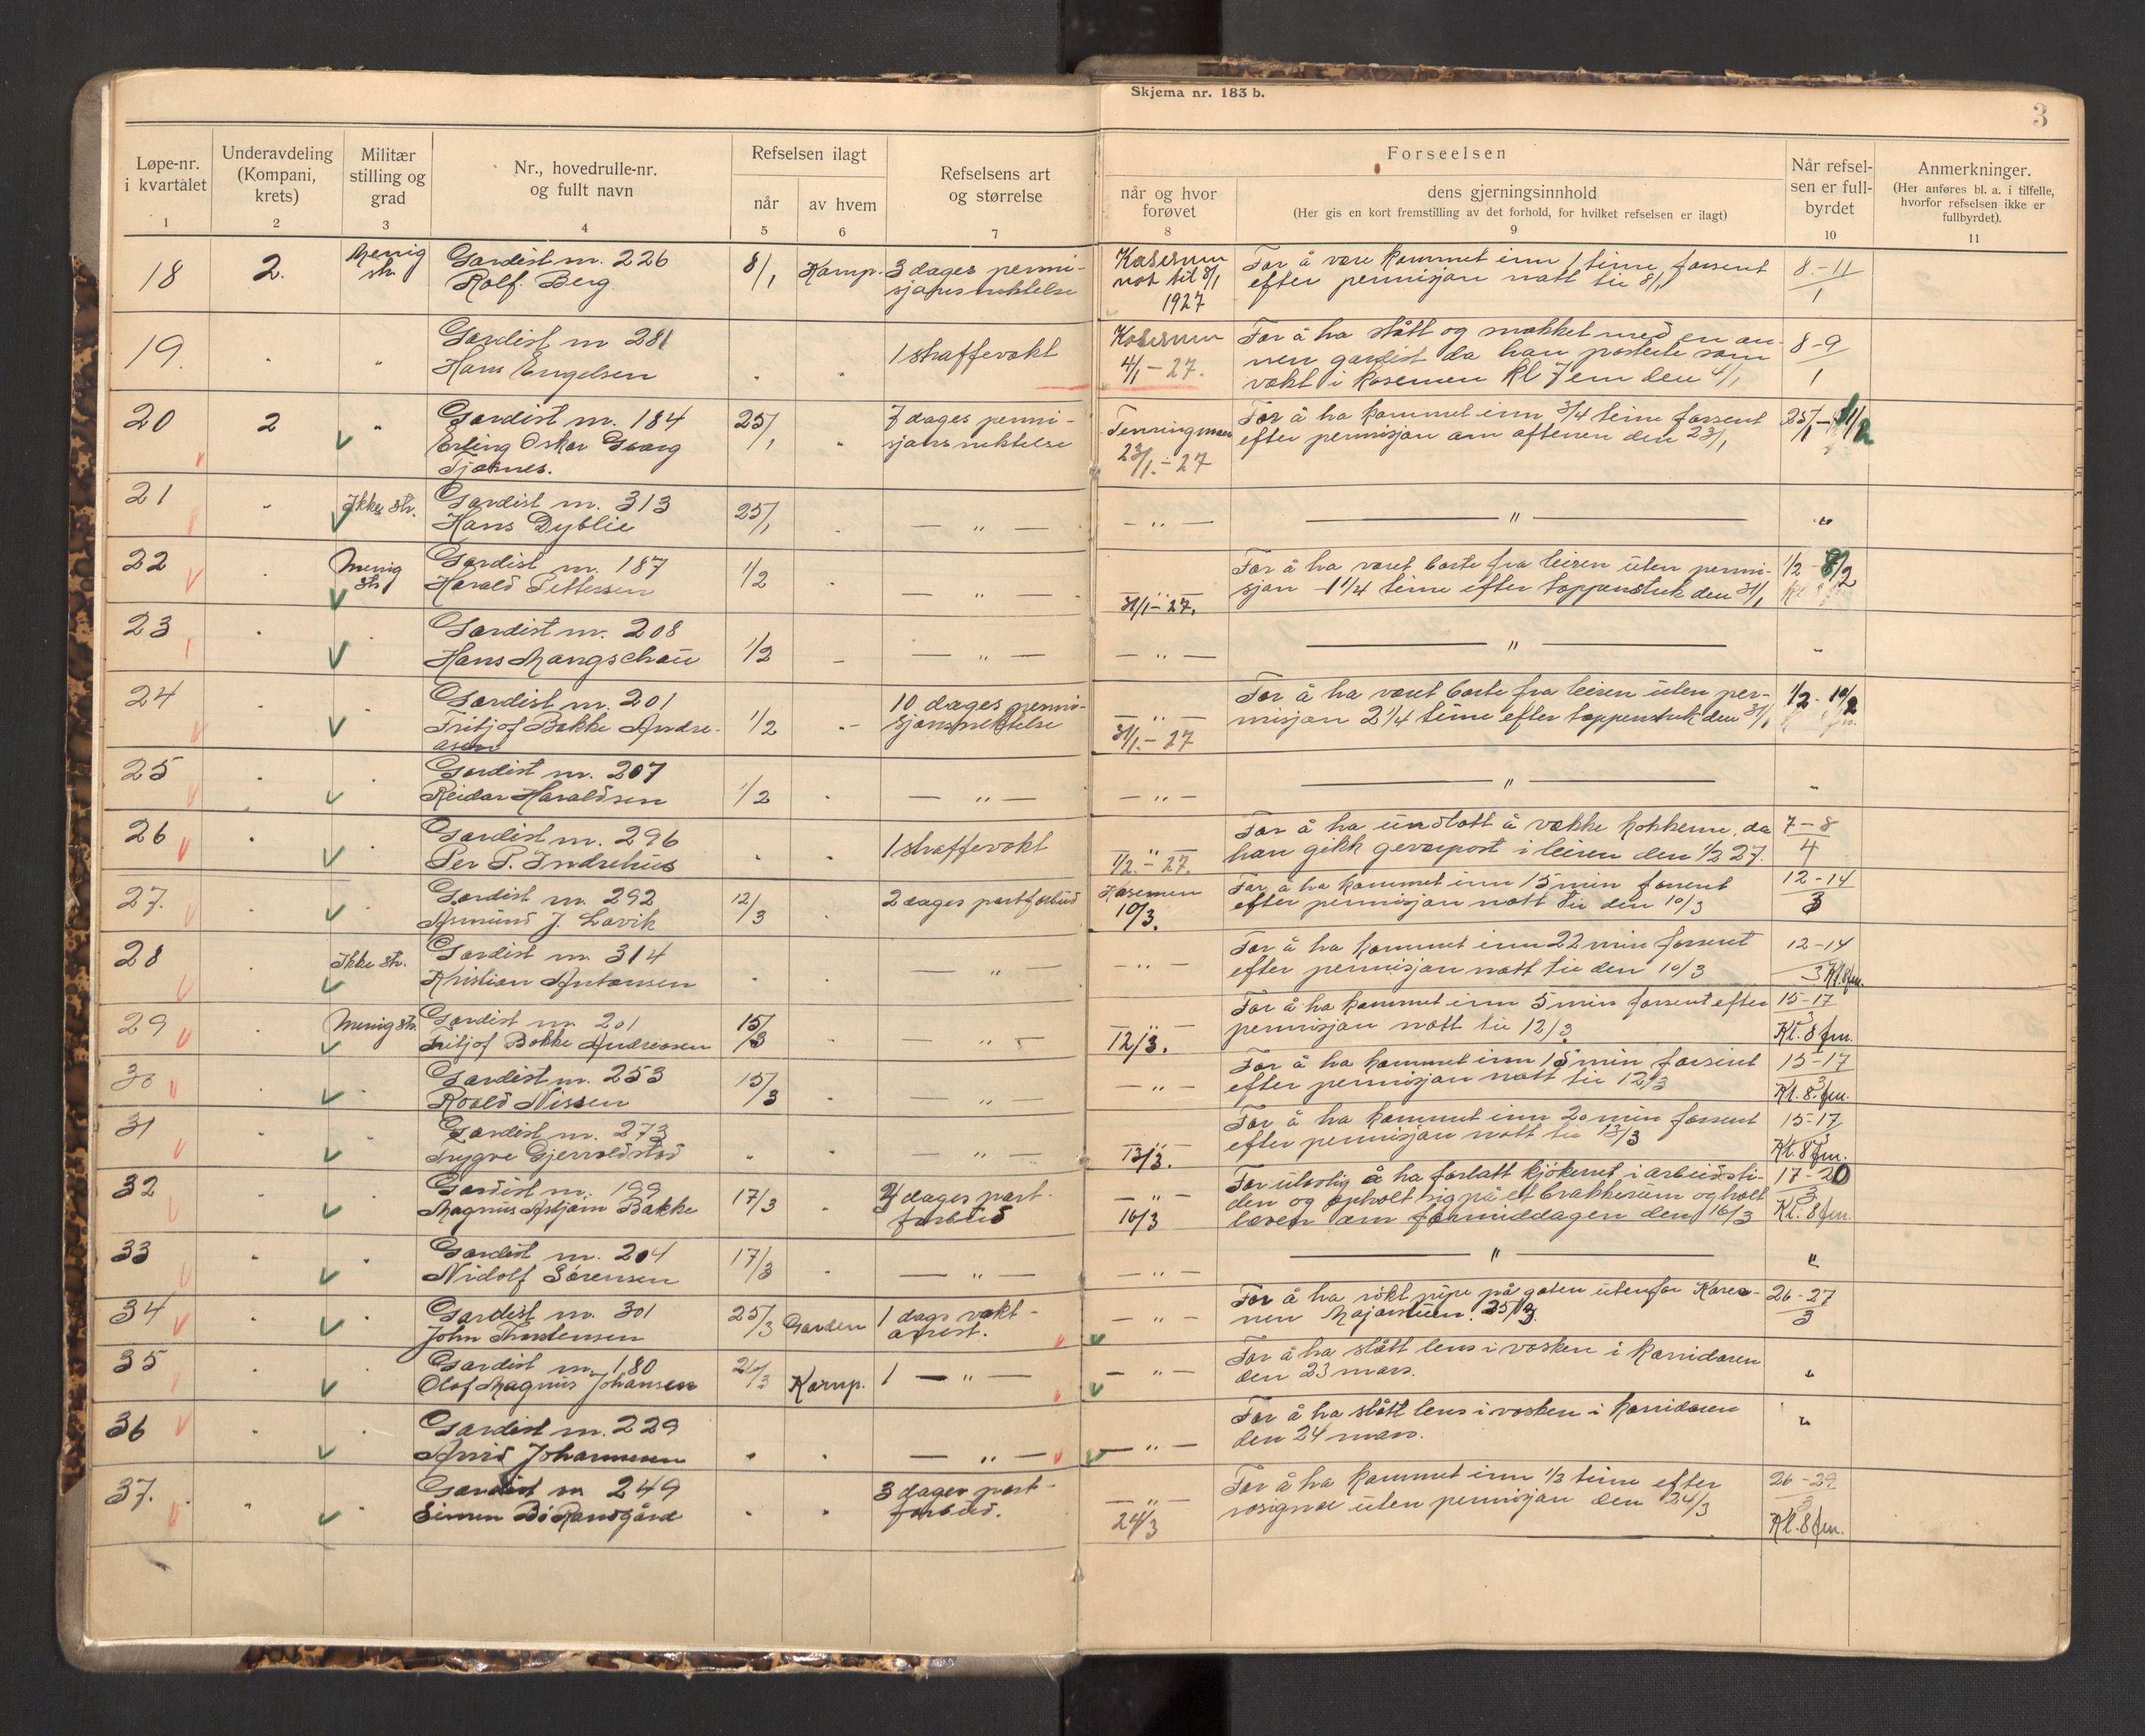 Skjema nr. 183 b.
3
Løpe-nr.
i kvartalet
1
Underavdeling
(Kompani,
krets)
2
Militær
stilling og
grad
3
Nr., hovedrulle-nr.
og fullt navn
4
Refselsen ilagt
når
5
av hvem
6
Refselsens art
og størrelse
7
Forseelsen
når og hvor
forøvet
8
dens gjerningsinnhold
(Her gis en kort fremstilling av det forhold, for hvilket refselsen er ilagt)
9
Når refsel-
sen er full-
byrdet
10
Anmerkninger.
(Her anføres bl. a. i tilfelle,
hvorfor refselsen ikke er
fullbyrdet).
11
18 2. Menig str. Gardist nr. 226 8/1 Komp. 3 dages permi-
Rolf Berg sjonsnektelse
Kasernen For å være kommet inn 1 time forsent 8.-11
nat til 8/1 efter permisjon natt til 8/1 1
1927
19. Gardist nr 281
Hans Engelsen 1 straffevakt
Kasernen For å ha stått og snakket med en an-
4/1-27. nen gardist da han posterte som 8-9
vakt i kasernen kl 7 em den 4/1 1
20 2 " Gardist nr. 184 25/1 7 dages permi-
Erling Oskar Georg sjonsnektelse
Tjornes.
For å ha kommet inn 3/4 time forsent 25/1-
efter permisjon om aftenen den 23/1
23/1.-27
21 Ikke str. Gardist nr. 313 25/1 — " —
Hans Dyblie
— " — — " — "
22 Menig str Gardist nr. 187 1/2 — " —
Harald Pettersen
For å ha været borte fra leiren uten permi- 1/2 - 8/2
31/1-27. sjon 1 1/4 time efter tappenstrek den 31/1
23 Gardist nr. 208
Hans Mangschau 1/2 — " —
— " — — " — "
24 Gardist nr. 201 1/2 10 dages permi-
Fritjof Bakke Andre- sjonsnektelse
asen
— " — For å ha været borte fra leiren uten per- 1/2 - 10/2
31/1.-27 misjon 2 1/4 time efter tappenstrek den 31/1
25 Gardist nr. 207
Reidar Haraldsen 1/2 — " —
— " — — " — "
26 Gardist nr. 296 1 straffevakt
Per P. Indrehus
" For å ha undlatt å vække kokkerne, da 7-8
1/2.-27. han gikk geværpost i leiren den 1/2 27. 4
27. Gardist nr. 292 12/3 2 dages portforbud
Asmund J. Lavik
Kasernen For å ha kommet inn 15 min forsent 12-14
10/3. efter permisjon natt til den 10/3 3
28 Ikke str. Gardist nr. 314
Kristian Antonsen — " —
— " — For å ha kommet inn 22 min forsent 12-14
efter permisjon natt til den 10/3 3 Kl. 8 fm.
29 Menig str. Gardist nr. 201 15/3
Fritjof Bakke Andreasen — " —
— " — For å ha kommet inn 5 min forsent efter 15-17
12/3. permisjon natt til 12/3 3 Kl. 8 fm.
30 Gardist nr. 253 15/3
Roald Nissen "
— " — For å ha kommet inn 15 min forsent 15-17
efter permisjon natt til 12/3 3 Kl. 8. fm.
31 Gardist nr. 273
Trygve — " —
— " — For å ha kommet inn 20 min forsent 15-17
13/3. efter permisjon natt til 13/3 3 Kl. 8 fm.
32 Gardist nr. 199 17/3 dages port-
Magnus Asbjørn Bakke forbud
— " — For ulovlig å ha forlatt kjökenet i arbeidsti- 17-20
den og opholt sig på et brakkerum og holt 3
16/3 leven om formiddagen den 16/3 Kl. 8 fm.
33 Gardist nr. 204 17/3
Nidolf Sörensen — " —
— " — — " — "
34 Gardist nr. 301 25/3 Garden 1 dags vakt-
John Thorstensen arrest.
— " — For å ha rökt pipe på gaten utenfor Kaser- 26-27
nen Majorstuen. 25/3. 3
35 Gardist nr. 180 26/3 Komp. 1 — " —
Olaf Magnus Johansen
— " — For å ha slått lens i vasken i korridoren
den 23 mars. "
36 Gardist nr. 229
Arvid Johannesen — " —
— " — For å ha slått lens i vasken i korridoren
den 24 mars. "
37. Gardist nr 249 3 dager port-
Simen forbud.
— " — For å ha kommet inn 1/2 time efter 26-29
24/3 rosignal uten permisjon den 24/3 3
Kl. 8 fm.